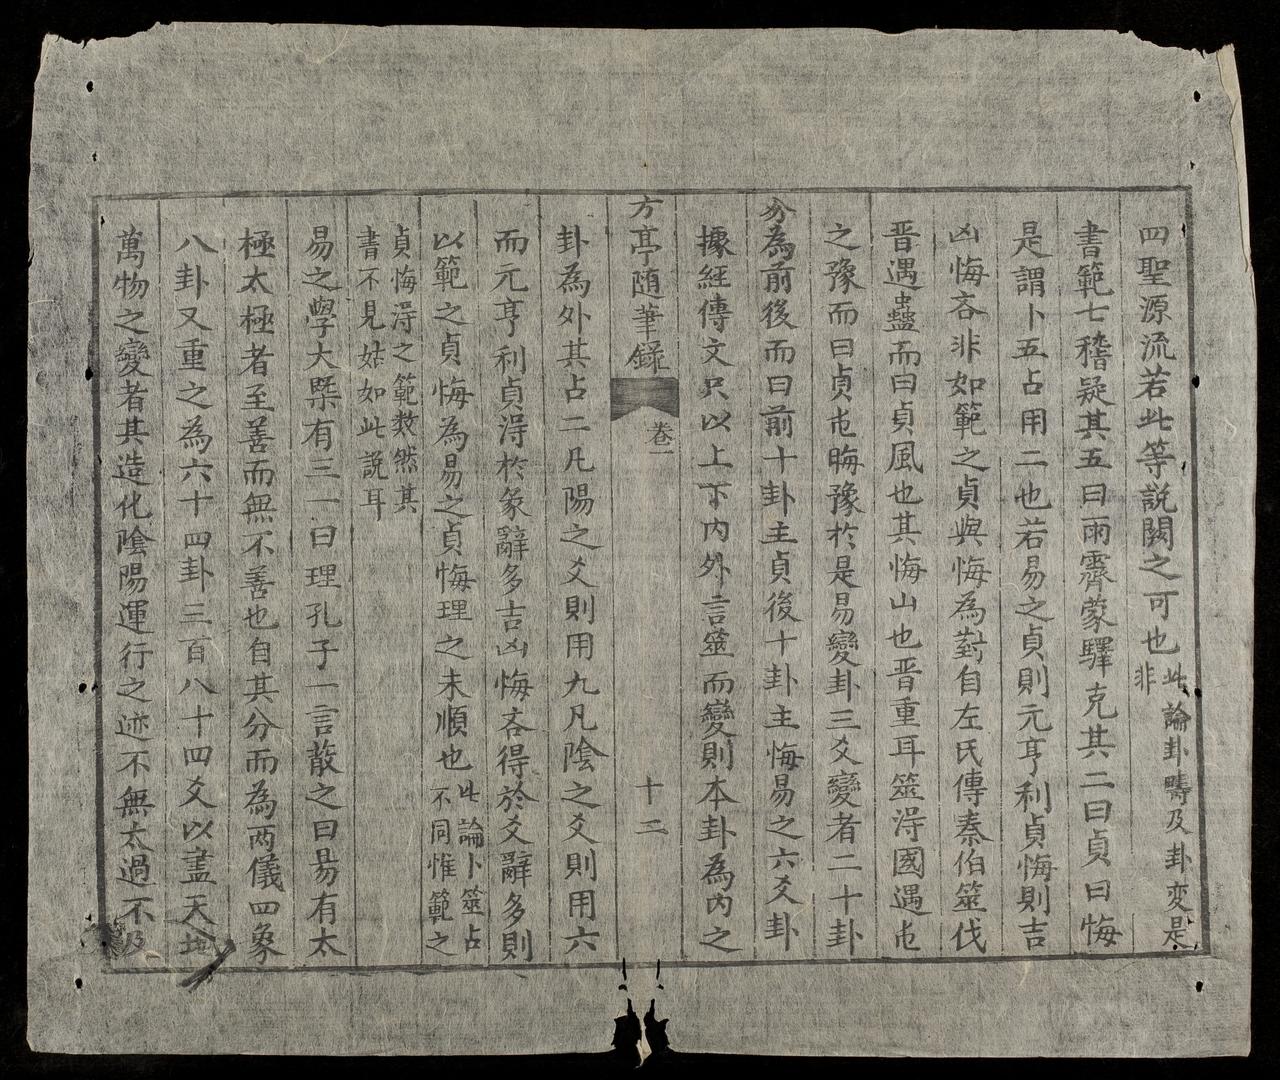 四聖源流若此等説闕之可也此論卦疇及卦变是非
書範七稽疑其五曰雨霽蒙驛克其二曰貞曰悔
是謂卜五占用二也若易之貞則元亨利貞悔則吉
凶悔吝非如範之貞與悔為對自左氏傳秦伯筮伐
晋遇蠱而曰貞風也其悔山也晋重耳筮淂國遇屯
之豫而曰貞屯晦豫於是易變卦三爻變者二十卦
分為前後而曰前十卦主貞後十卦主悔易之六爻卦
據経傳文只以上下内外言筮而變則本卦為内之
方亭随筆錄 卷一 十二
卦為外其占二凡陽之爻則用九凡陰之爻則用六
而元亨利貞淂於彖辭多吉凶悔吝得於爻辭多則
以範之貞悔為易之貞悔理之未順也此論卜筮占不同惟範之
貞悔淂之範数然其書不見姑如此説耳
易之學大槩有三一曰理孔子一言蔽之曰易有太
極太極者至善而無不善也自其分而為两儀四象
八卦又重之為六十四卦三百八十四爻以盡天地
萬物之變者其造化陰陽運行之迹不無太過不及